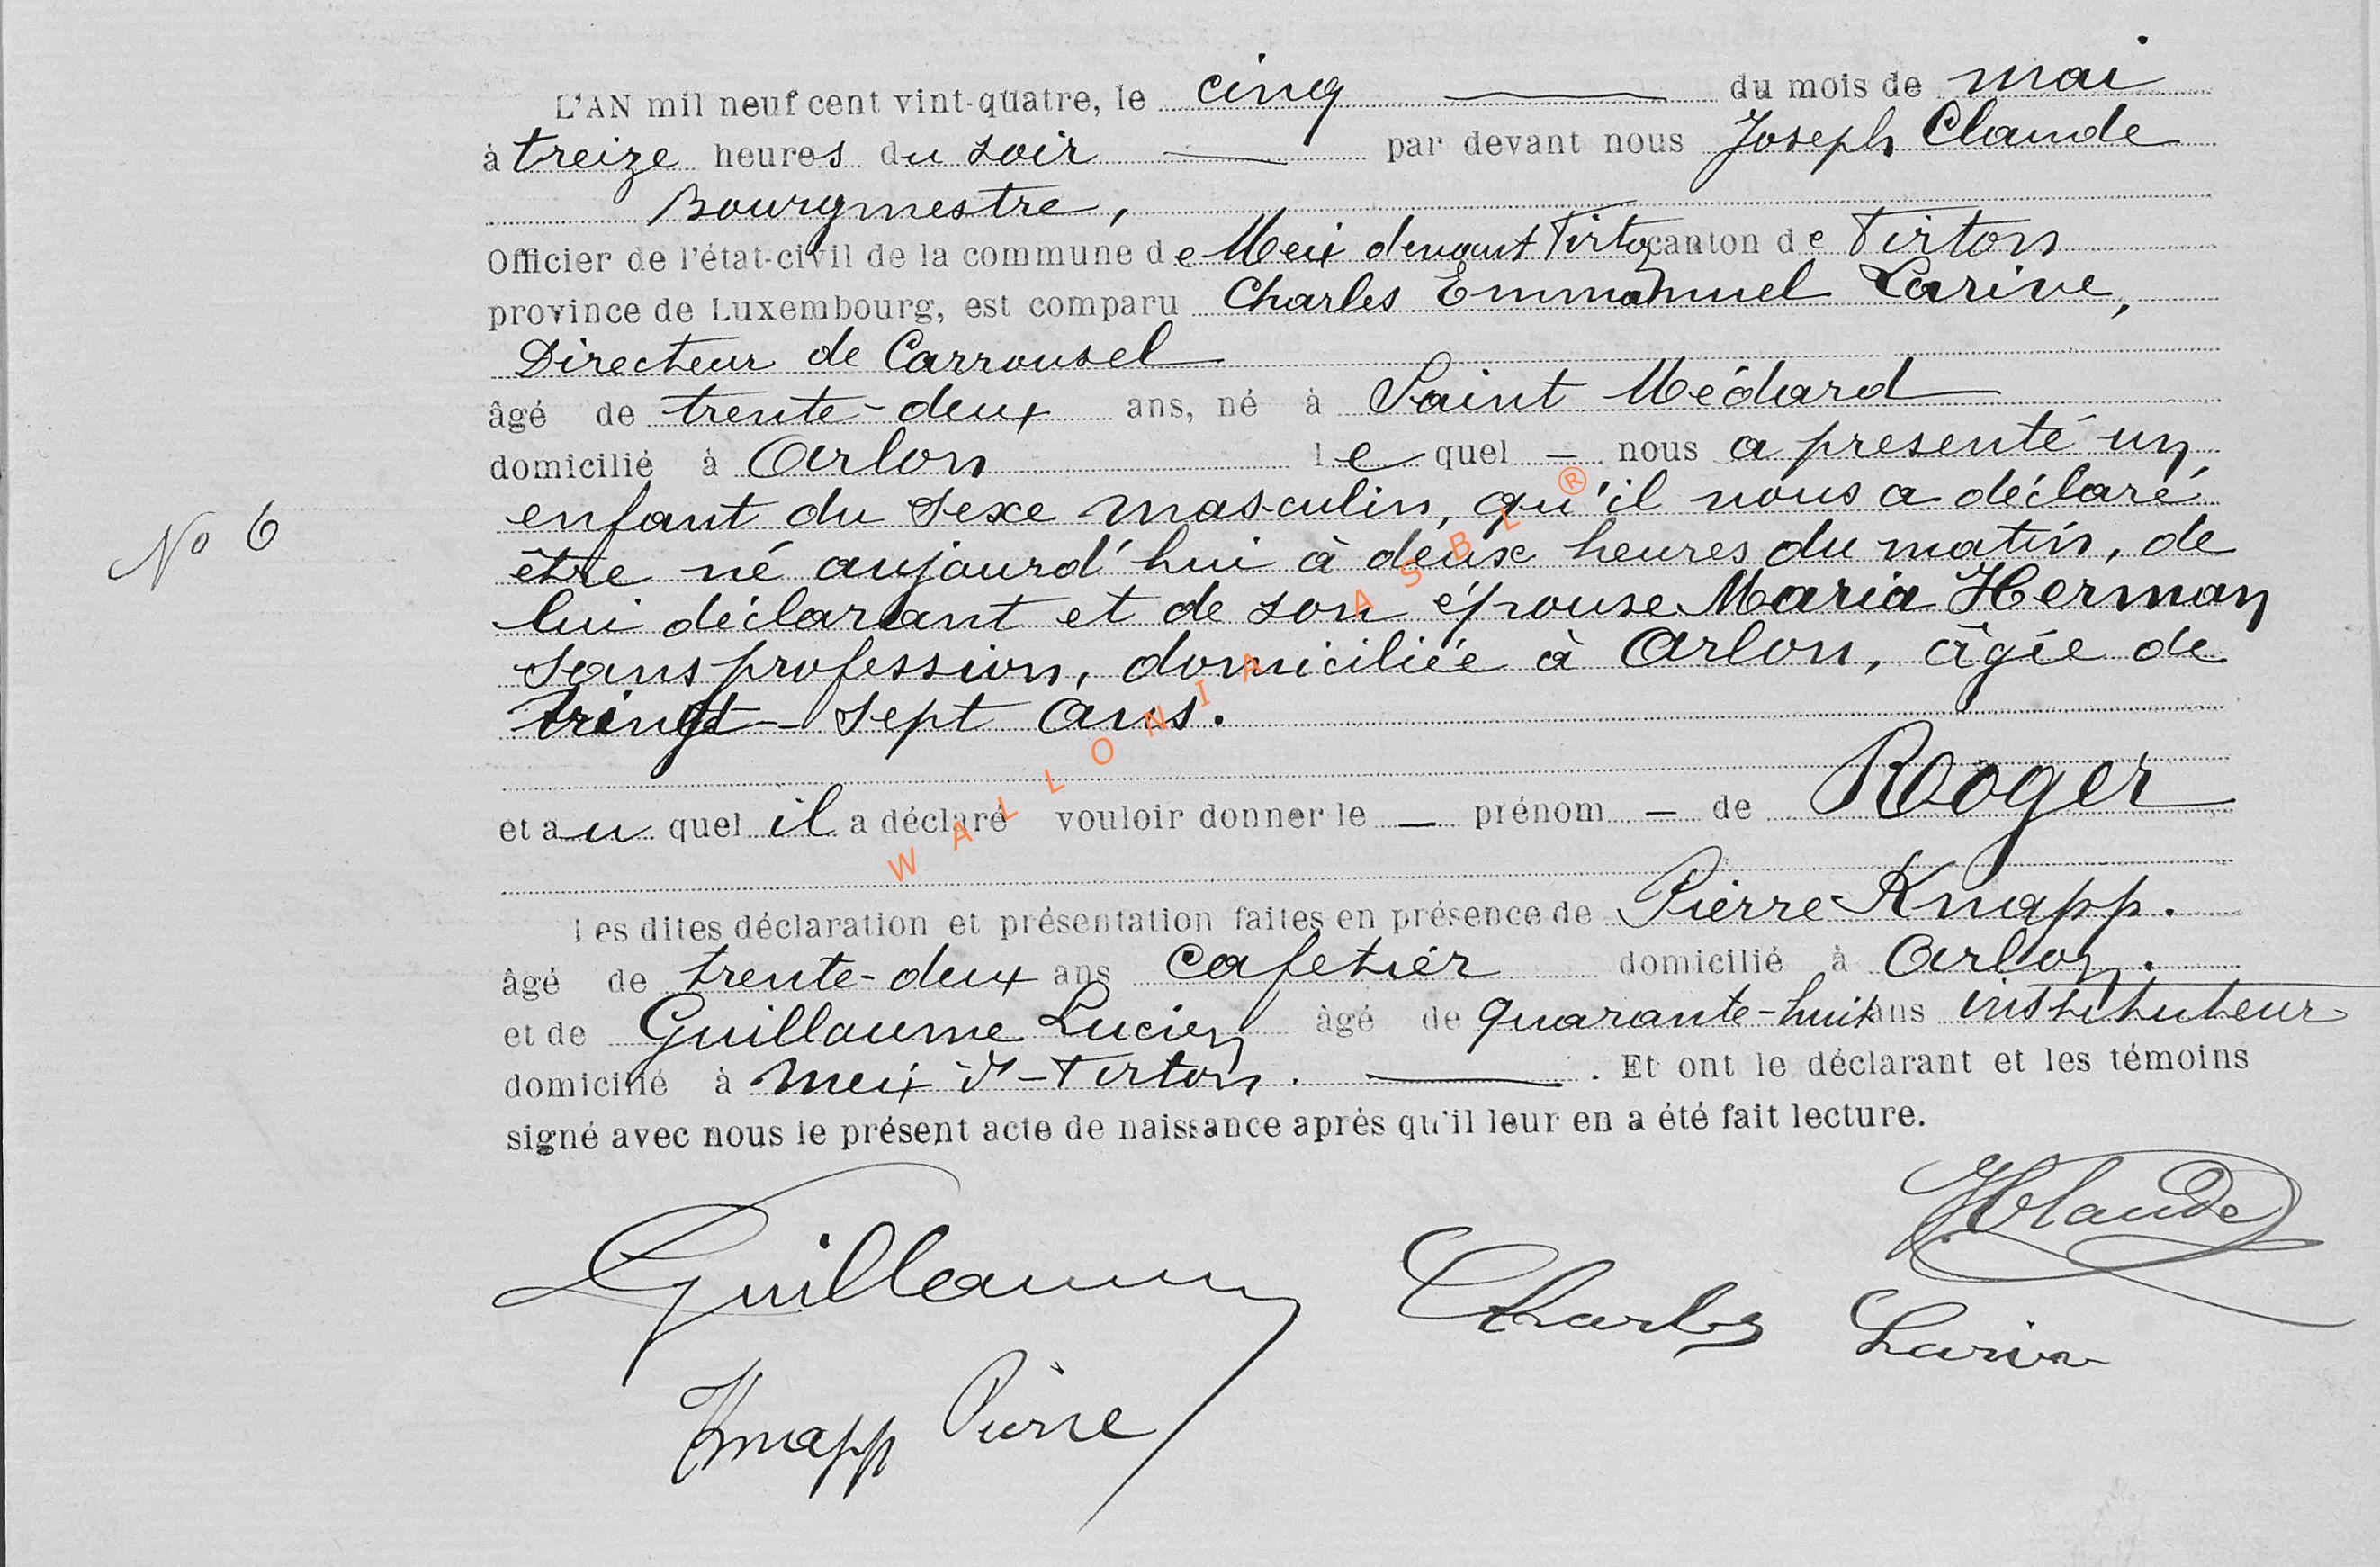 L'AN mil neuf cent vint-quatre, le cinq du mois de mai
à treize heures du soir par devant nous Joseph Claude
Bourgmestre,
Officier de l'état-civil de la commune de Meix devant Virton canton de Virton
province de Luxembourg, est comparu Charles Emmanuel Larive,
Directeur de Carrousel
âgé de trente-deux ans, né à Saint Médard
domicilié à Arlon lequel — nous a presenté un
enfant du sexe masculin, qu'il nous a déclaré
N° 6
être né aujourd'hui à deux heures du matin, de
lui déclarant et de son épouse Maria Herman
sans profession, domiciliée à Arlon, âgée de
vingt-sept ans.
et auquel il a déclaré vouloir donner le — prénom — de Roger
Les dites déclaration et présentation faites en présence de Pierre Knapp.
âgé de trente-deux ans cafetier domicilié à Arlon.
et de Guillaume Lucien âgé de quarante-huit ans instituteur
domicilié à Meix dt-Virton. . Et ont le déclarant et les témoins
signé avec nous le présent acte de naissance après qu'il leur en a été fait lecture.
JClaude
Guillaume Charles Larive
Knapp Pierre
WALLONIA ASBL ®